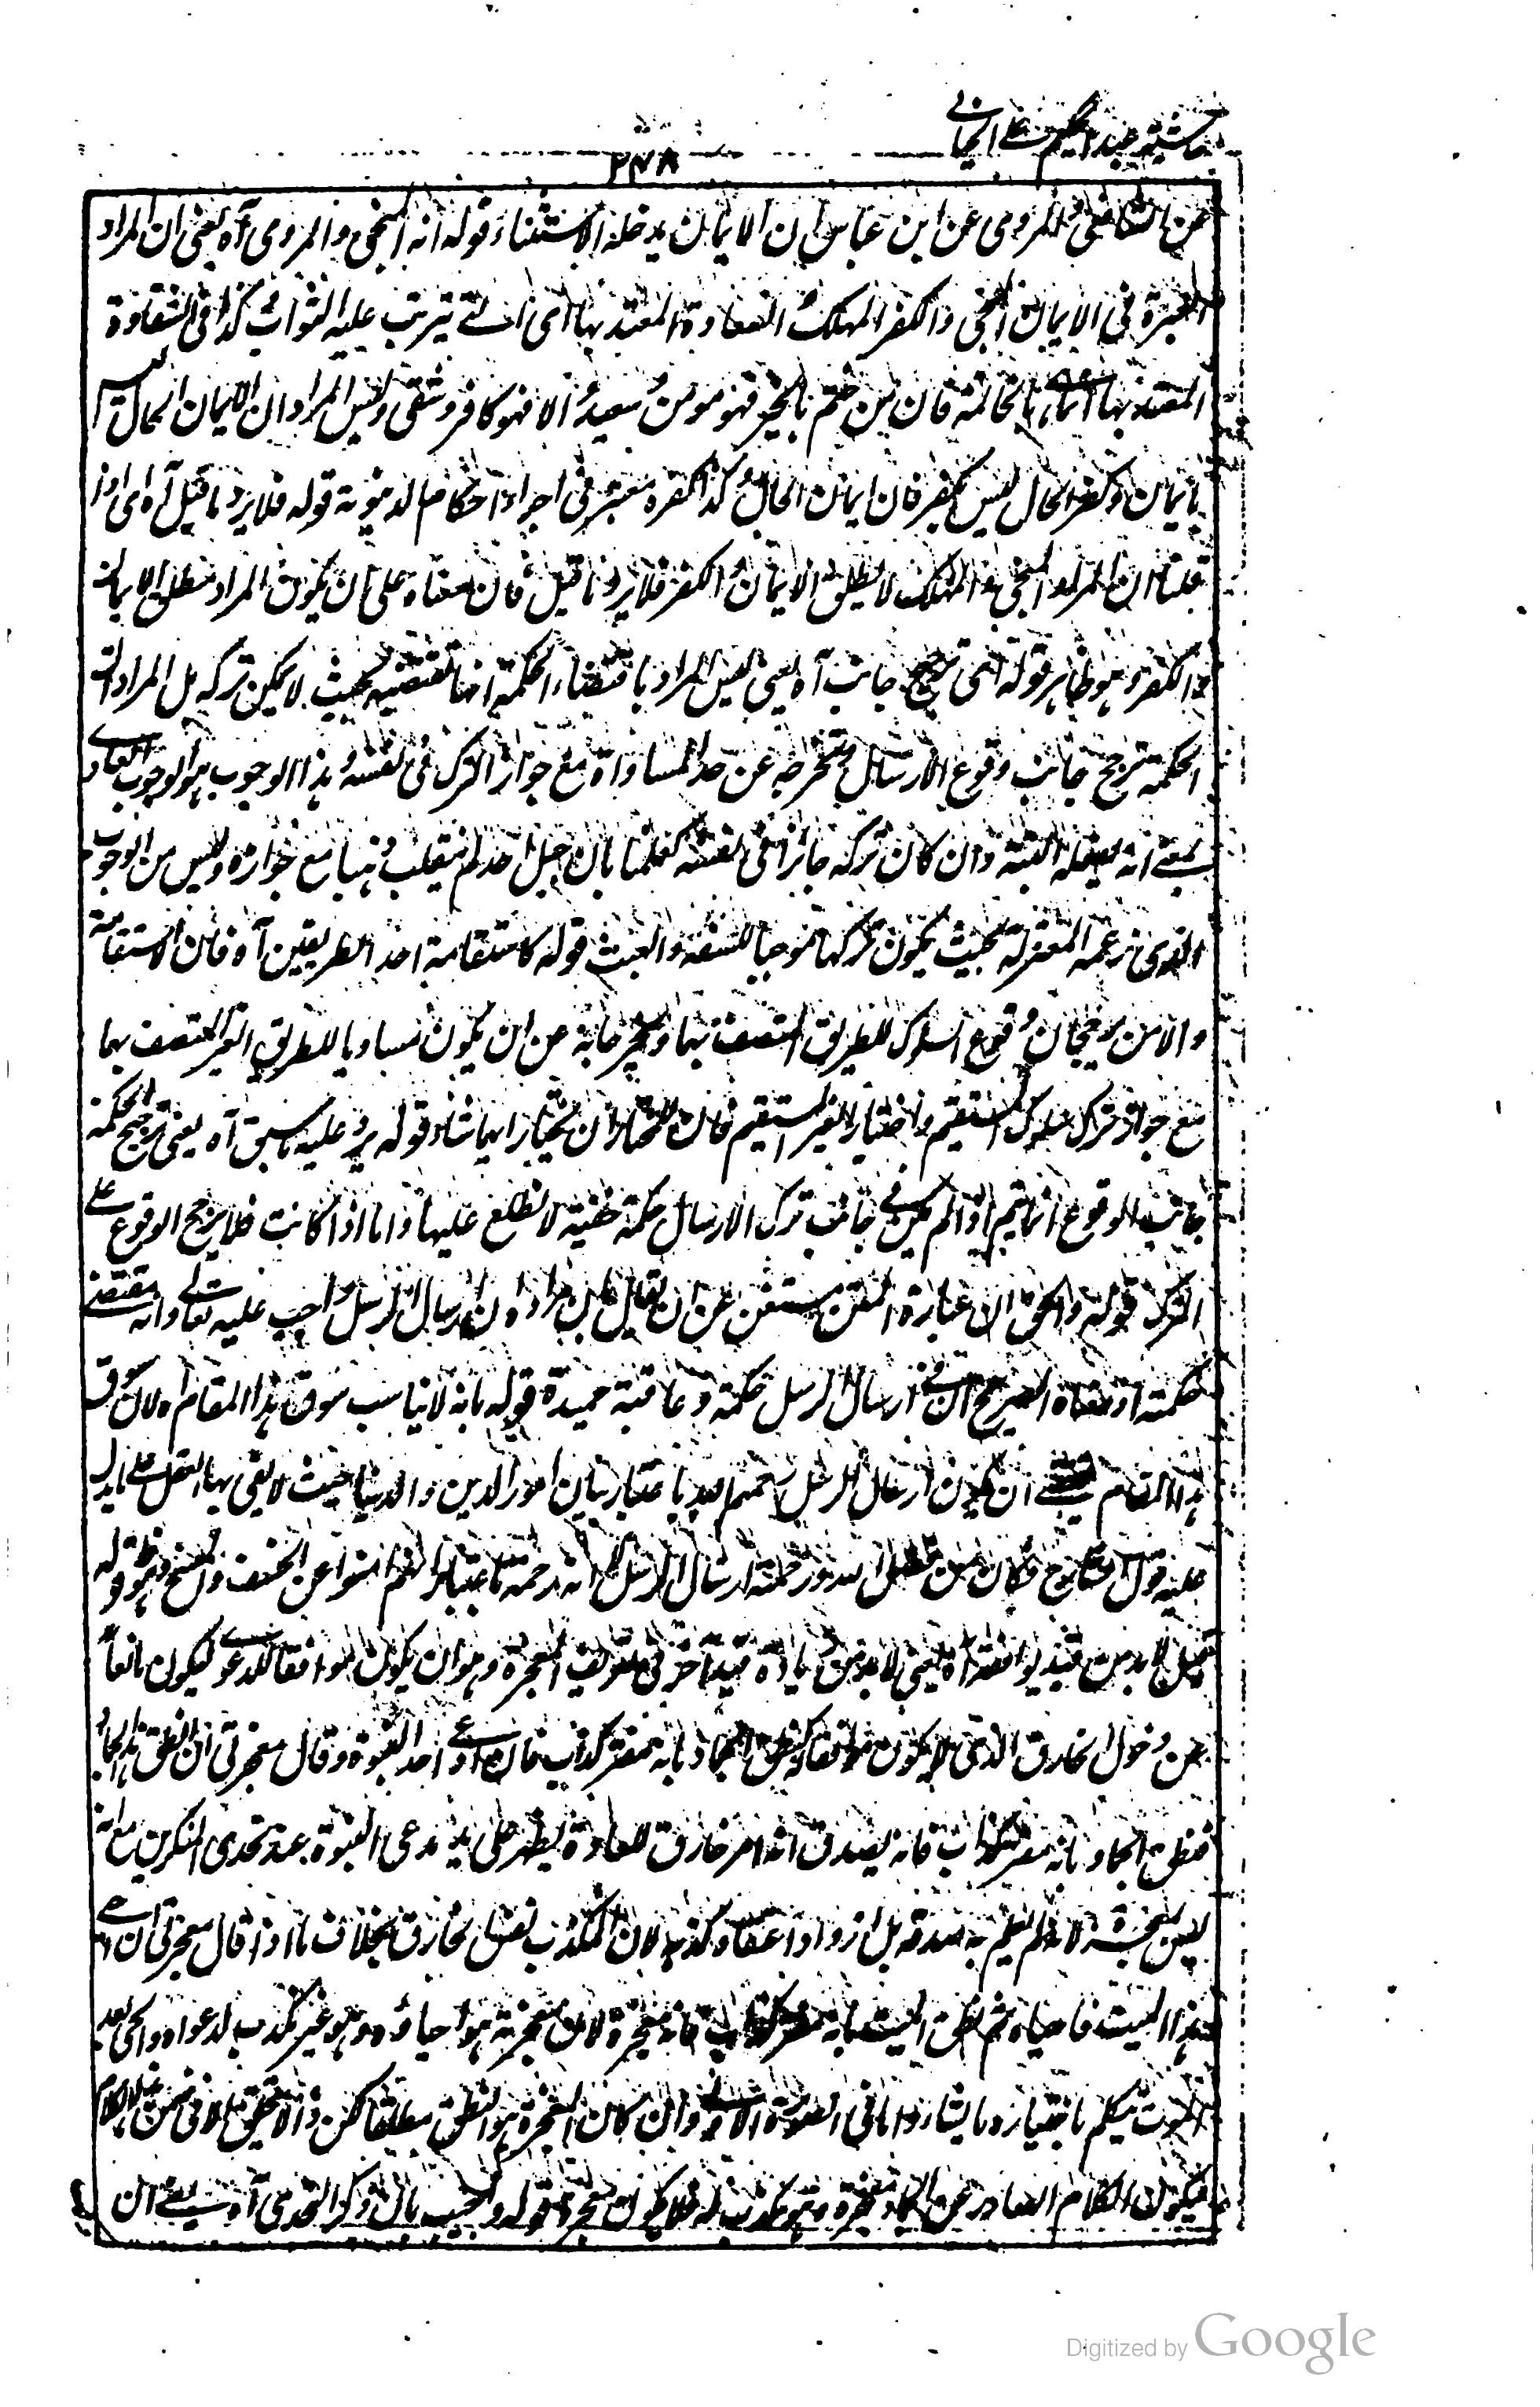 حاشية عبد الحكيم على الخيالي
٢٧٨
عن الشافعي المروي عن ابن عباس ان الايمان يدخله الاستثناء قوله انه المنجي والمروي آه يعني ان المراد
المعتبرة في الايمان المنجي والكفر المهلك السعادة المعتد بها اي التي يترتب عليه الثواب كذا في الشقاوة
المعتد بها انما بالخاتمة فان من ختم بالخير فهو مومن سعيد والا فهو كافر وشقي وليس المراد ان الايمان الحال ليس
بايمان وكفر الحال ليس بكفر فان ايمان الحال وكذا كفره معتبر في اجراء احكام الدنيوية قوله فلا يرد ما قيل آه اي اذا
قلنا ان المراد المنجي والمهلك لا مطلق الايمان والكفر فلا يرد ما قيل فان معناه على ان يكون المراد مطلق الايمان
والكفر وهو ظاهر قوله اي ترجح جانب آه يعني ليس المراد باقتضاء الحكمة انها تقتضيه بحيث لا يمكن تركه بل المراد ان
الحكمة ترجح جانب وقوع الارسال وتخرجه عن حد المساواة مع جواز الترك في نفسه وهذا الوجوب هو الوجوب العادي
بمعنى انه يفعله البتة وان كان تركه جائزا في نفسه كعلمنا بان جبل احد لم ينقلب ذهبا مع جوازه وليس من الوجوب
الذي زعمه المعتزلة بحيث يكون تركها موجبا للسفه والعبث قوله كاستقامة احد الطريقين آه فان الاستقامة
والامن يرجحان وقوع السلوك للطريق المتصف بهما ويخرجانه عن ان يكون مساويا للطريق الغير المتصف بهما
مع جواز ترك سلوك المستقيم واختيار الغير المستقيم فان للمختار ان يختار ايهما شاء قوله يرد عليه ما سبق آه يعني ترجيح الحكمة
جانب الوقوع انما يتم اذا لم يكن في جانب ترك الارسال حكمة خفية لا نطلع عليها واما اذا كانت فلا يترجح الوقوع على
الترك قوله والحق ان عبارة المتن مستغن عن ان يقال ان مراده ان ارسال الرسل واجب عليه تعالى وانه مقتضى
حكمته اذ معناه الصريح ان في ارسال الرسل حكمة وعاقبة حميدة قوله بانه لا يناسب سوق هذا المقام لان سوق
هذا المقام ان يكون ارسال الرسل رحمة باعتبار بيان امور الدين والدنيا حيث لا يفي بها العقل على ما يدل
عليه قول الشارح فكان من فضل الله ورحمته ارسال الرسل لا انه رحمة باعتبار انهم امنوا عن الخسف والمسخ وهو قوله
قيل لا بد من قيد يوافقه آه يعني لا بد من زيادة قيد آخر في تعريف المعجزة وهو ان يكون موافقا للدعوى ليكون مانعا
عن دخول الخارق الذي لا يكون موافقا كنطق الجماد بانه مفتر كذاب فان ادعى احد النبوة وقال معجزتي ان انطق هذا الجماد
فنطق الجماد بانه مفتر كذاب فانه يصدق انه امر خارق للعادة يظهر على يد مدعي النبوة عند تحدي المنكرين مع انه
ليس بمعجزة لانه لم يعلم به صدقه بل ازداد اعتقاد كذبه لان المكذب نفس الخارق بخلاف ما اذا قال معجزتي ان احيي
هذا الميت فاحياه ثم نطق الميت بانه مفتر كذاب فانه معجزة لان معجزته هو احياؤه وهو غير مكذب لدعواه والحي بعد
الموت يتكلم باختياره ما يشاء واما في الصورة الاولى وان كان المعجزة هو النطق مطلقا لكن لا يتحقق الا في ضمن هذا الكلام
فيكون الكلام الصادر عن الجماد معجزة وهو مكذب له فلا يكون معجزة قوله واجيب بان ذكر التحدي آه يعني ان
Digitized by Google